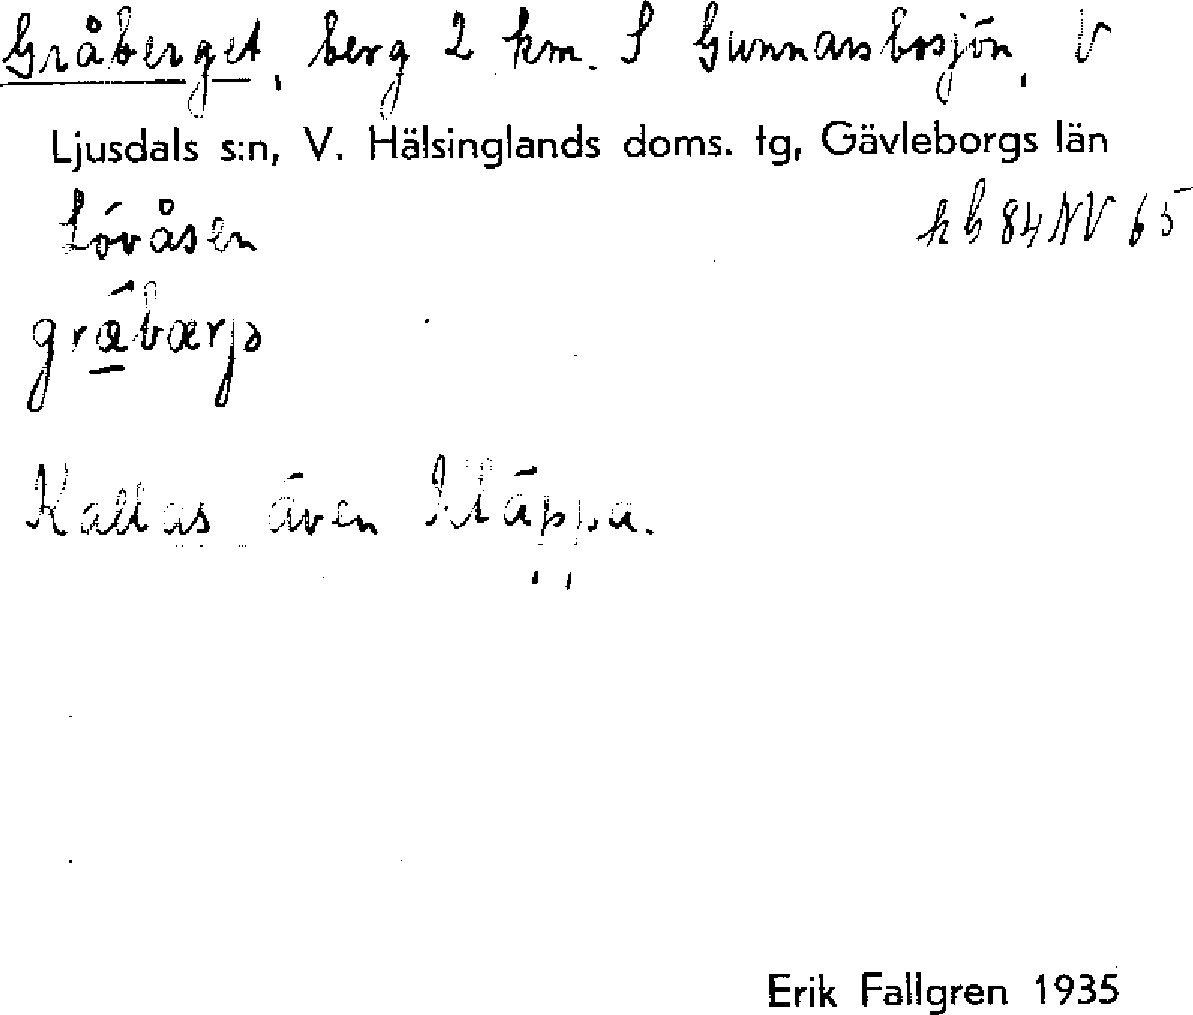 Gråberget, berg 2 km. S Gunnarsbosjön, V
Ljusdals s:n, V. Hälsinglands doms. tg, Gävleborgs län
Lövåsen
kb 84 NV 65
Kallas även Kläppa.
Erik Fallgren 1935